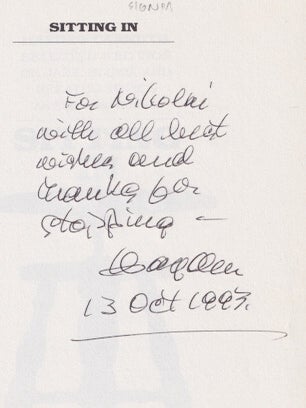 SIGNED
SITTING IN
For Nikolai
with all best
wishes and
thanks for
stopping —
13 Oct 1993.